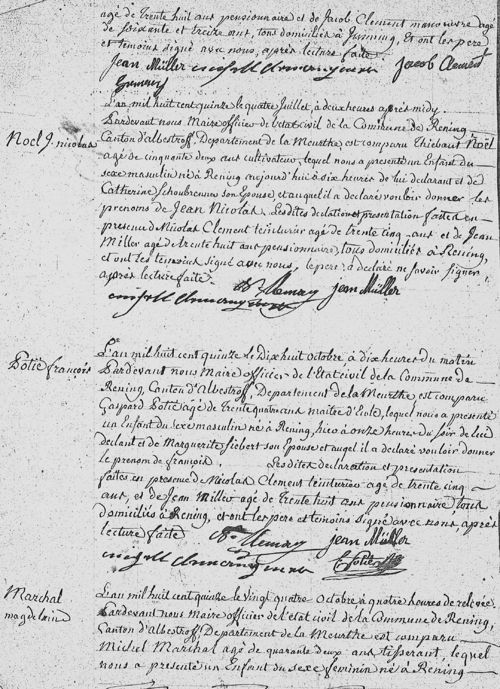 agé de trente huit ans pensionnaire et de Jacob Clement manoeuvre agé
de soixante et treize ans, tous domiciliés à Juining, et ont les pere
et temoins signé avec nous, après lecture faite
Jean Müller Jacob Clement
L'an mil huit cent quinze le quatre Juillet, à deux heures après midy
Pardevant nous Maire officier de l'etat civil de la Commune de Rening,
Noel J. nicolas
Canton d'albestroff, Departement de la Meurthe est comparu Thiebaut Noël
agé de cinquante deux ans cultivateur, lequel nous a presenté un Enfant du
sexe masulin né à Rening aujourd'hui à six heures de lui declarant et de
Catherine Schoubrenne son Epouse, et auquel il a declaré vouloir donner les
prenoms de Jean Nicolas. Lesdites declation et presentation faites en
presence de Nicolas Clement teinturier agé de trente cinq ans et de Jean
Miller agé de trente huit ans pensionnaire, tous domiciliés à Rening,
et ont les temoins signé avec nous, le pere à declaré ne savoir signer,
après lecture faite.
Jean Müller
L'an mil huit cent quinze le Dix huit octobre à dix heures du matin
Potié françois
Pardevant nous Maire officier de l'Etat civil de la Commune de
Rening, Canton d'Albestroff, Departement de la Meurthe est comparu
Gaspard Potié agé de trente quatre ans maitre d'Ecole, lequel nous a presenté
un Enfant du sexe masulin né à Rening, hier à onze heures du soir de lui
declant et de Marguerite siebert son Epouse et auqel il a declaré vouloir donner
le prenom de françois. Lesdites declaration et presentation
faites en presence de Nicolas Clement teinturier agé de trente cinq
ans, et de Jean Miller agé de trente huit ans pensionnaire tous
domiciliés à Rening, et ont les pere et temoins signé avec nous, après
lecture faite
Jean Müller
Potié
Marchal
magdelaine
L'an mil huit cent quinze le vingt quatre octobre à quatre heures de relevée
Pardevant nous Maire officier de l'état civil de la Commune de Rening,
Canton d'Albestroff, Departement de la Meurthe est comparu
Michel Marchal agé de quarante deux ans tisserant, lequel
nous a presenté un Enfant du sexe feminin né à Rening